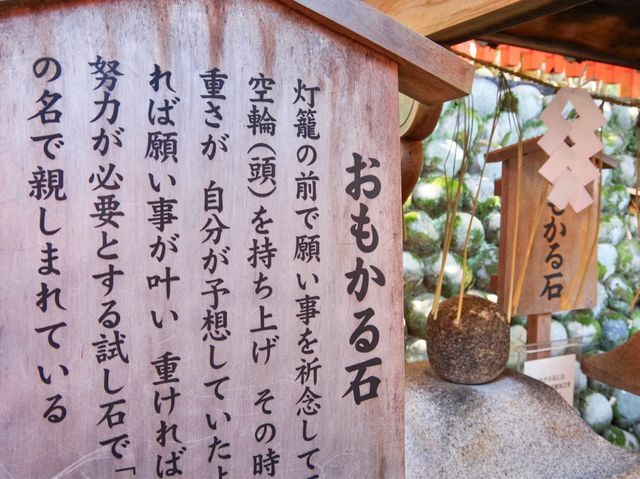 おもかる石
灯籠の前で願い事を祈念して
空輪(頭)を持ち上げ その時
重さが 自分が予想していた
れば願い事が叶い 重ければ
努力が必要とする試し石で「
の名で親しまれている
もかる石